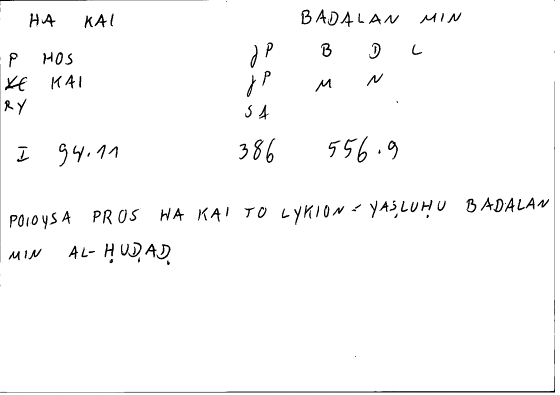 HA KAI BADALAN MIN
P HOS jP B D L
KE KAI jP M N
RY SA
I 94.11 386 556.9
POIOYSA PROS HA KAI TO LYKION = YAṢLUḤU BADALAN
MIN AL-ḤUḌAḌ